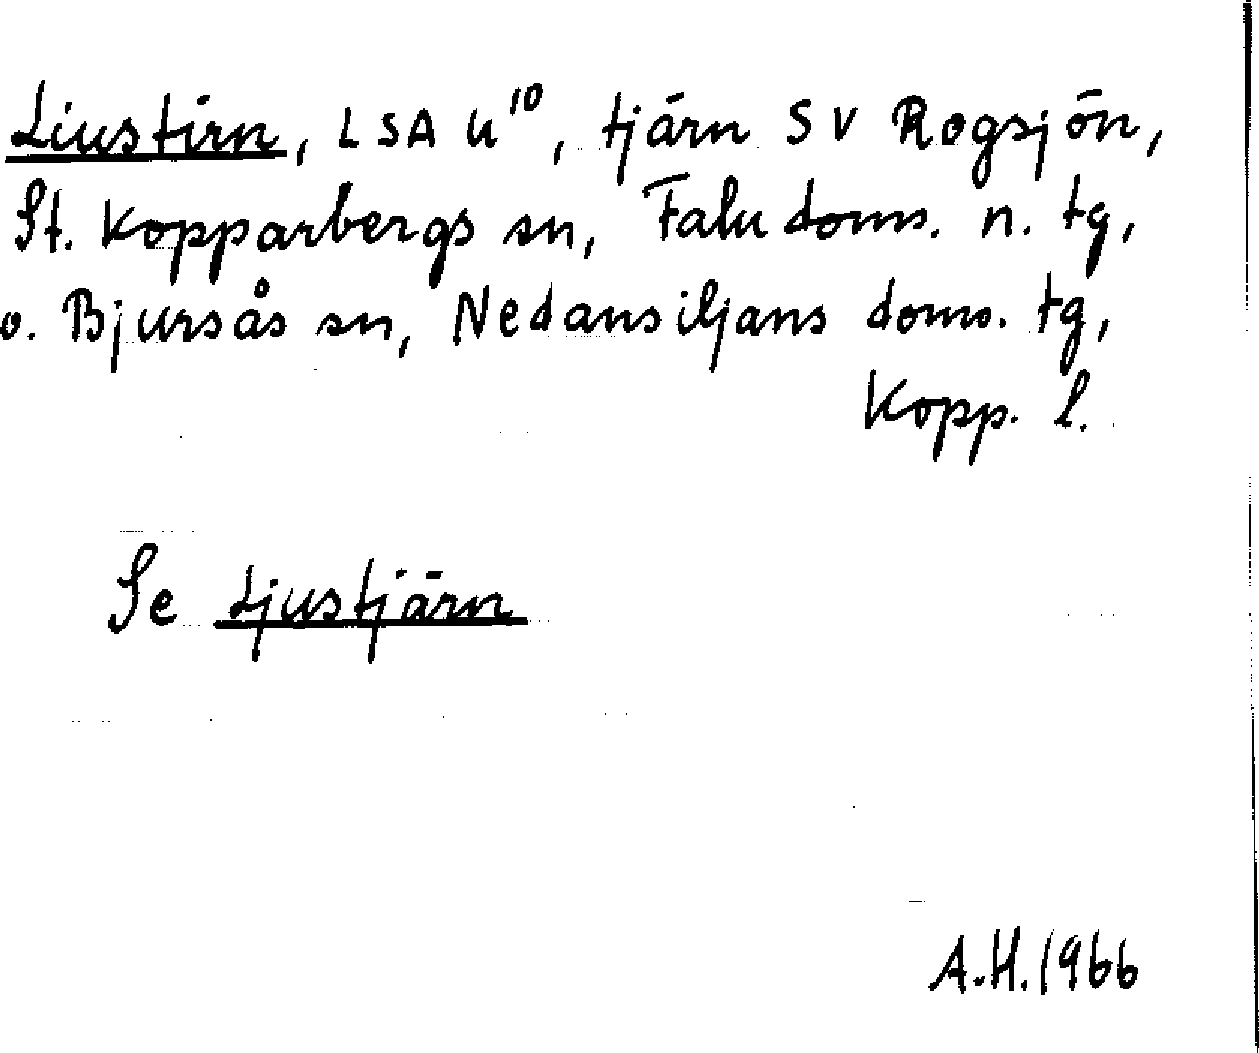 Liustirn, LSA U¹⁰, tjärn SV Rogsjön,
St. Kopparbergs sn, Falu doms. n. tg,
o. Bjursås sn, Nedansiljans doms. tg,
Kopp. l.
Se Ljustjärn
A.H. 1966